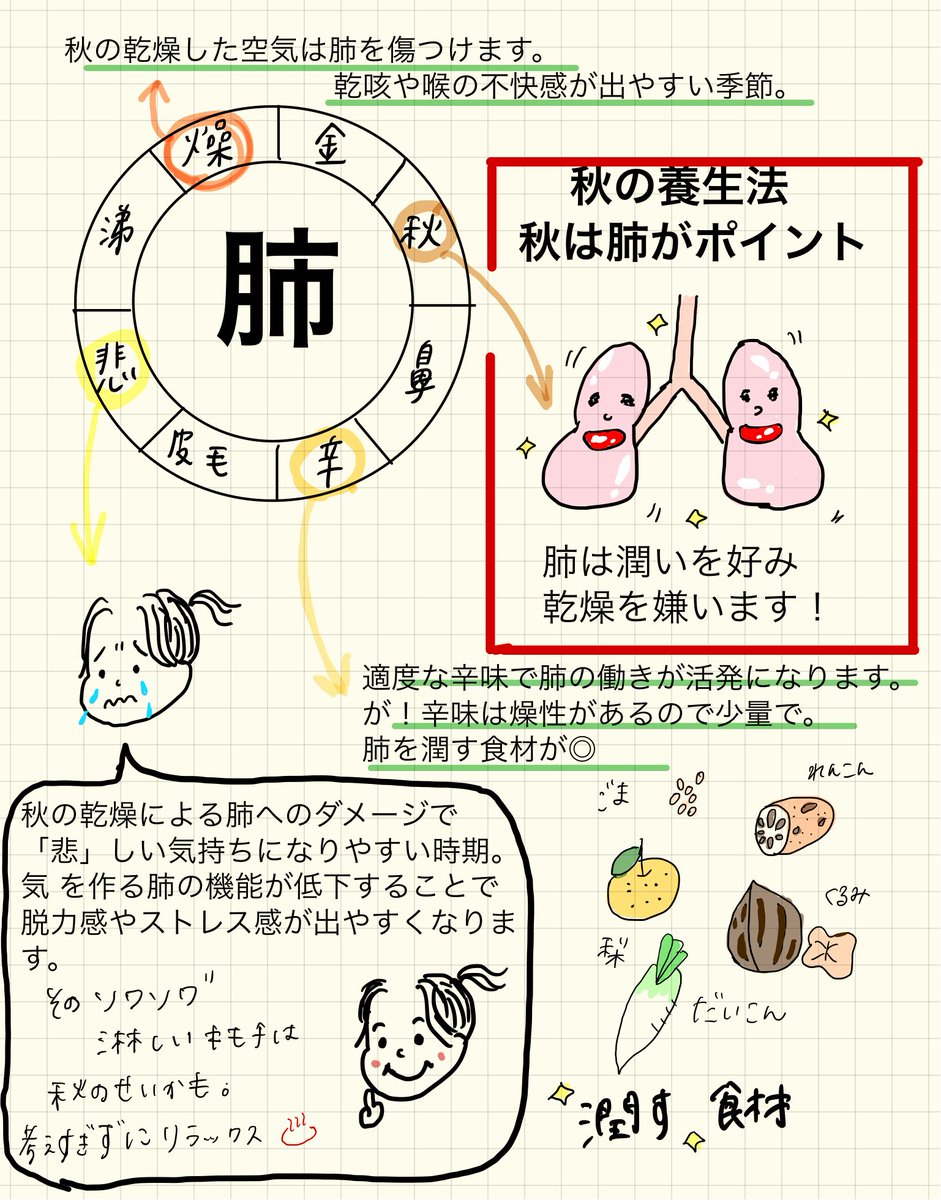 秋の乾燥した空気は肺を傷つけます。
乾咳や喉の不快感が出やすい季節。
燥
金
秋
鼻
辛
皮毛
悲
涕
肺
秋の養生法
秋は肺がポイント
肺は潤いを好み
乾燥を嫌います！
適度な辛味で肺の働きが活発になります。
が！辛味は燥性があるので少量で。
肺を潤す食材が◎
ごま
れんこん
くるみ
梨
だいこん
潤す 食材
秋の乾燥による肺へのダメージで
「悲」しい気持ちになりやすい時期。
気 を作る肺の機能が低下することで
脱力感やストレス感が出やすくなりま
す。
その ソワソワ
淋しい キモチは
秋のせいかも。
考えすぎずに リラックス ♨